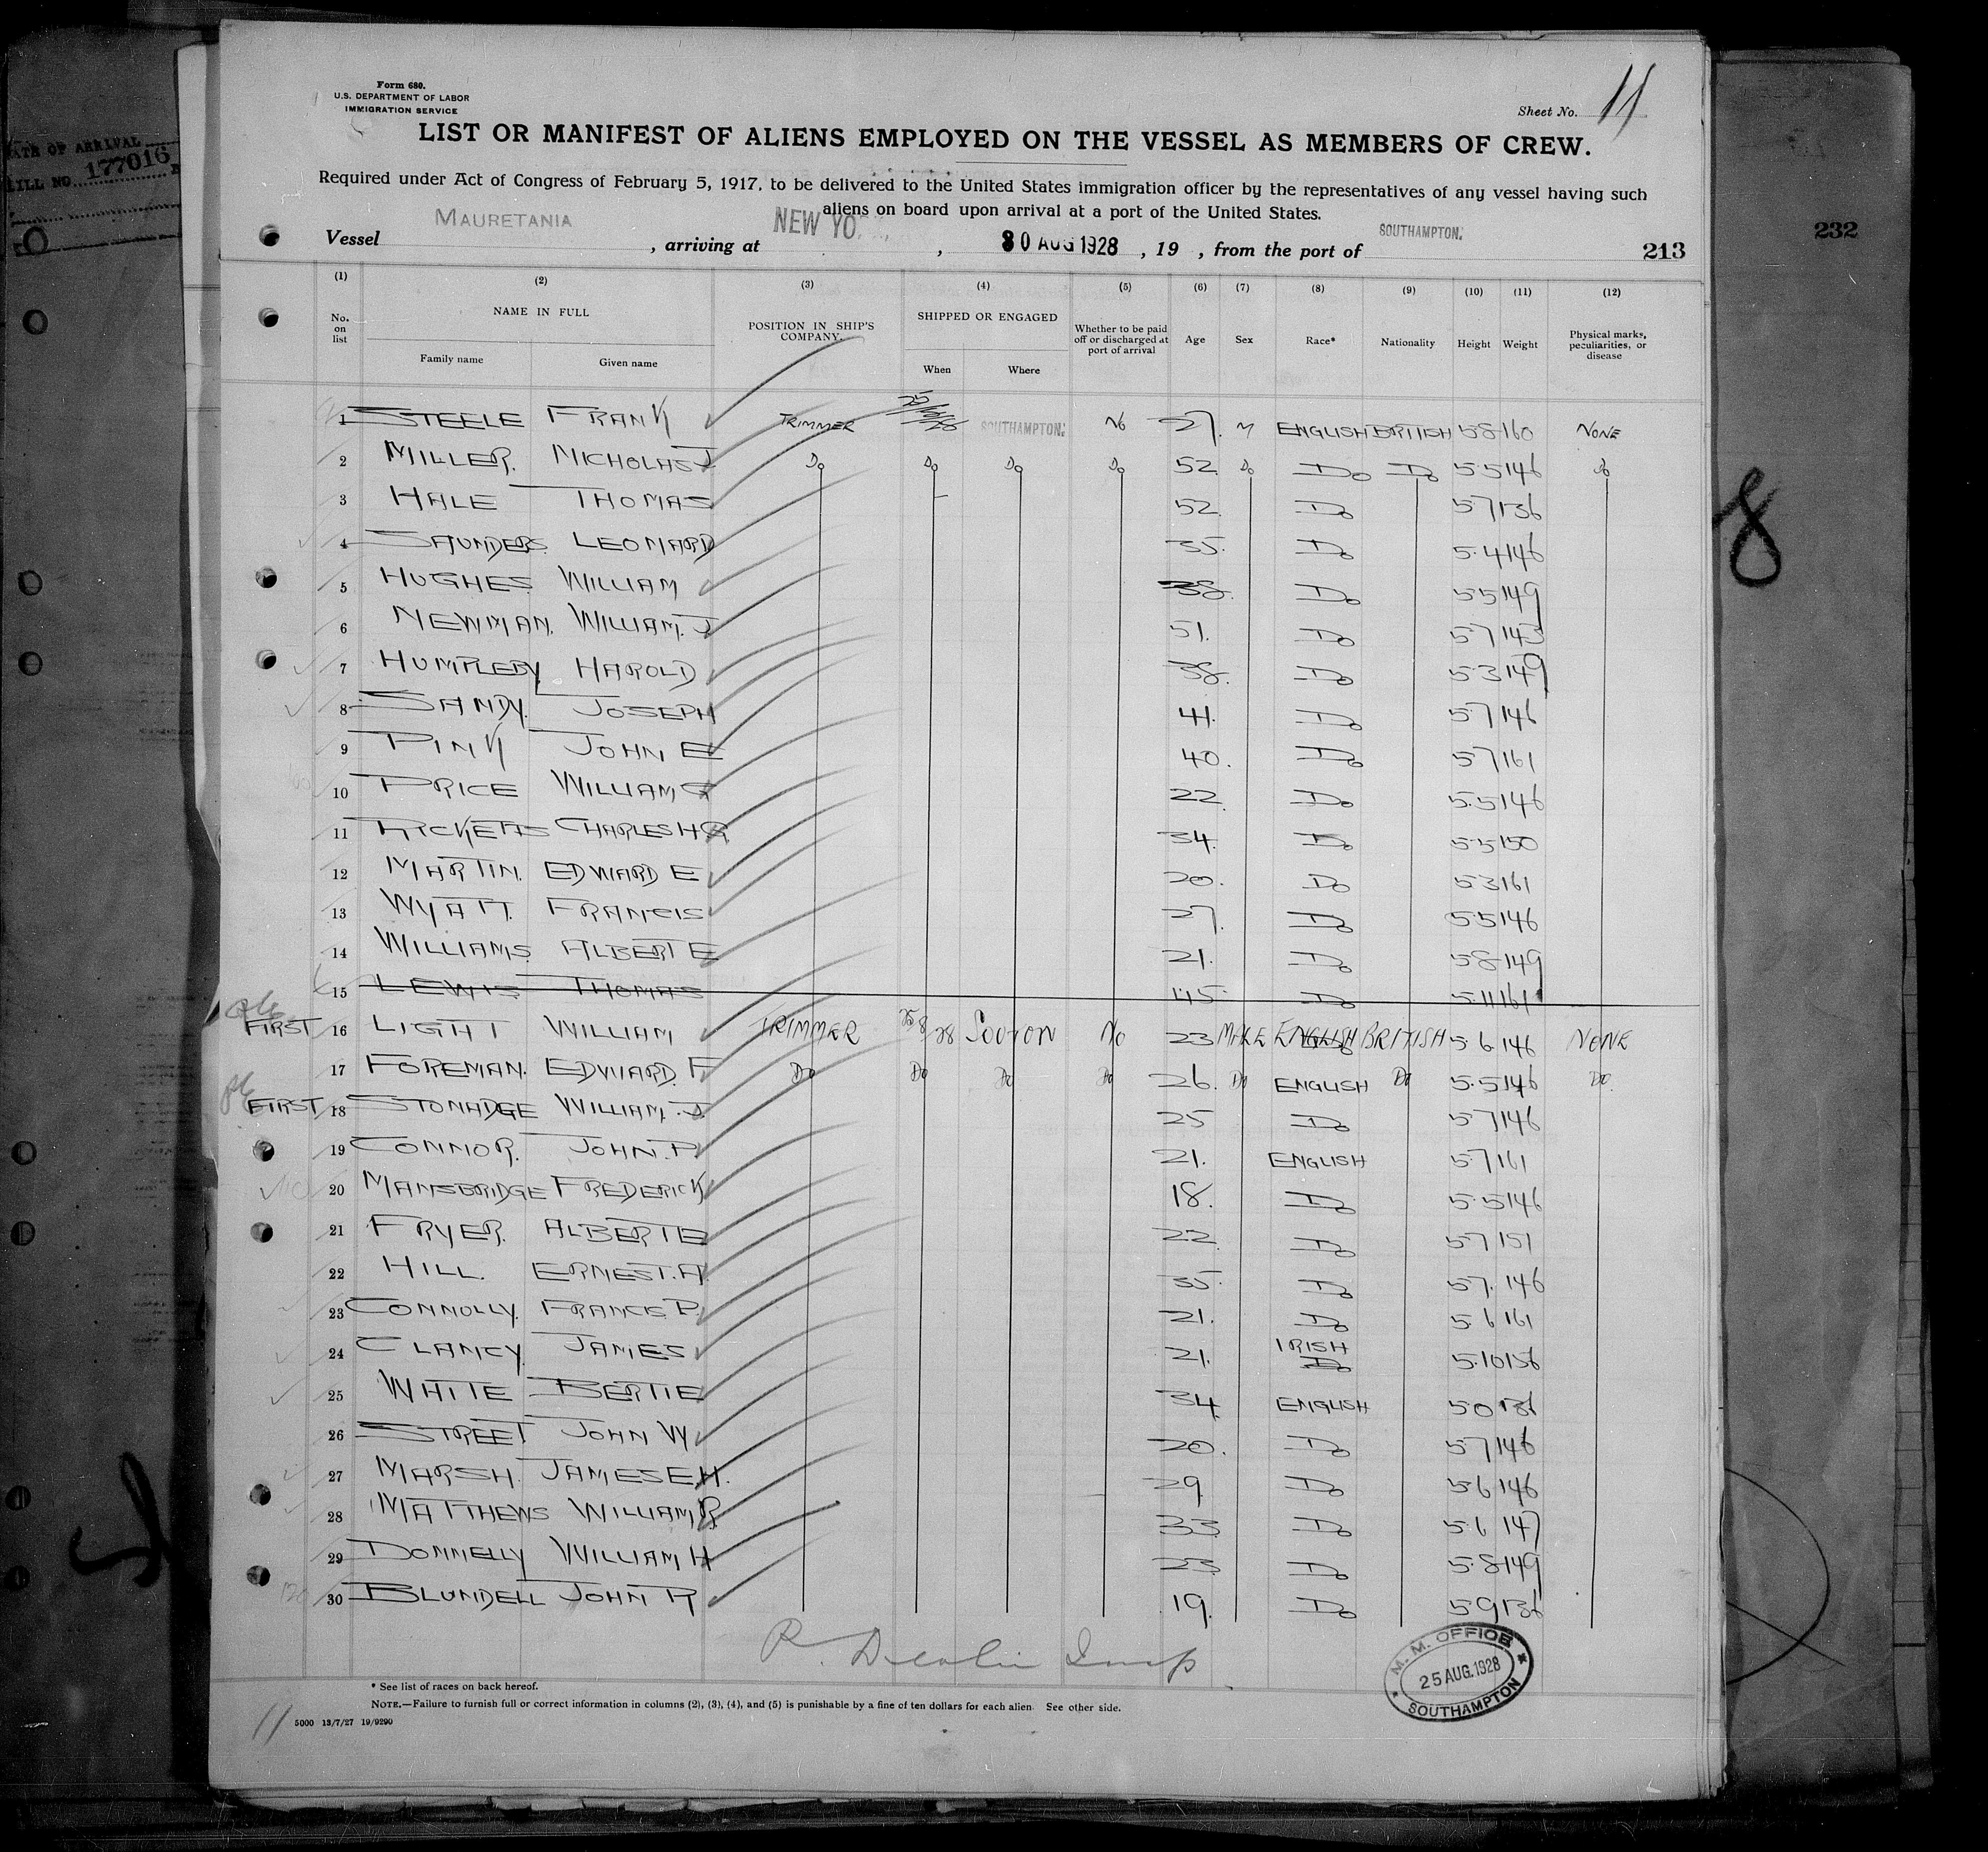 Form 680.
U.S. DEPARTMENT OF LABOR
IMMIGRATION SERVICE
Sheet No. 11
LIST OR MANIFEST OF ALIENS EMPLOYED ON THE VESSEL AS MEMBERS OF CREW.
Required under Act of Congress of February 5, 1917, to be delivered to the United States immigration officer by the representatives of any vessel having such
aliens on board upon arrival at a port of the United States.
Vessel MAURETANIA, arriving at NEW YO , 30 AUG 1928, 19 , from the port of SOUTHAMPTON. 213
(1) (2) (3) (4) (5) (6) (7) (8) (9) (10) (11) (12)
No. on list NAME IN FULL Family name Given name POSITION IN SHIP'S COMPANY. SHIPPED OR ENGAGED When Where Whether to be paid off or discharged at port of arrival Age Sex Race* Nationality Height Weight Physical marks, peculiarities, or disease
1 STEELE FRANK TRIMMER SOUTHAMPTON. NO 27. M ENGLISH BRITISH 5 8 160 NONE
2 MILLER. NICHOLAS J Do Do Do Do 52 Do Do Do 5.5 146 Do
3 HALE THOMAS 52 Do 5 7 136
4 SAUNDERS LEONARD 35. Do 5.4 146
5 HUGHES. WILLIAM 38. Do 5 5 149
6 NEWMAN. WILLIAM. J 51. Do 5 7 143
7 HUMPLEBY HAROLD 38. Do 5 3 149
8 SANDY. JOSEPH 41. Do 5 7 146
9 PINK JOHN E 40. Do 5 7 161
10 PRICE WILLIAM G 22 Do 5.5 146
11 RICKETTS CHARLES H G 34. Do 5 5 150
12 MARTIN. EDWARD E 20. Do 5 3 161
13 WYATT. FRANCIS 27. Do 5 5 146
14 WILLIAMS ALBERT E 21. Do 5 8 149
15 LEWIS THOMAS 45 Do 5.11 161
FIRST 16 LIGHT WILLIAM TRIMMER 25/8/28 SOUTON NO 23 MALE ENGLISH BRITISH 5 6 146 NONE
17 FOREMAN. EDWARD. F Do Do Do Do 26. Do ENGLISH Do 5.5 146 Do.
FIRST 18 STONADGE WILLIAM. J. 25 Do 5 7 146
19 CONNOR. JOHN. P 21. ENGLISH 5 7 161
20 MANSBRIDGE FREDERICK 18. Do 5.5 146
21 FRYER. ALBERT E 22 Do 5 7 151
22 HILL. ERNEST. A. 35. Do 5 7. 146
23 CONNOLLY. FRANCIS P. 21. Do 5 6 161
24 CLANCY JAMES 21. IRISH Do 5.10 156
25 WHITE BERTIE 34 ENGLISH 5 0 136
26 STREET JOHN W 20. Do 5 7 146
27 MARSH. JAMES E. H. 29. Do 5 6 146
28 MATTHEWS WILLIAM R 33 Do 5.6 147
29 DONNELLY WILLIAM H 23 Do 5.8 149
30 BLUNDELL JOHN R 19. Do 5 9 136
* See list of races on back hereof.
NOTE.—Failure to furnish full or correct information in columns (2), (3), (4), and (5) is punishable by a fine of ten dollars for each alien. See other side.
5000 13/7/27 19/9290
11
M. M. OFFICE
25 AUG. 1928
SOUTHAMPTON
OF ARRIVAL
NO. 177016
232
8